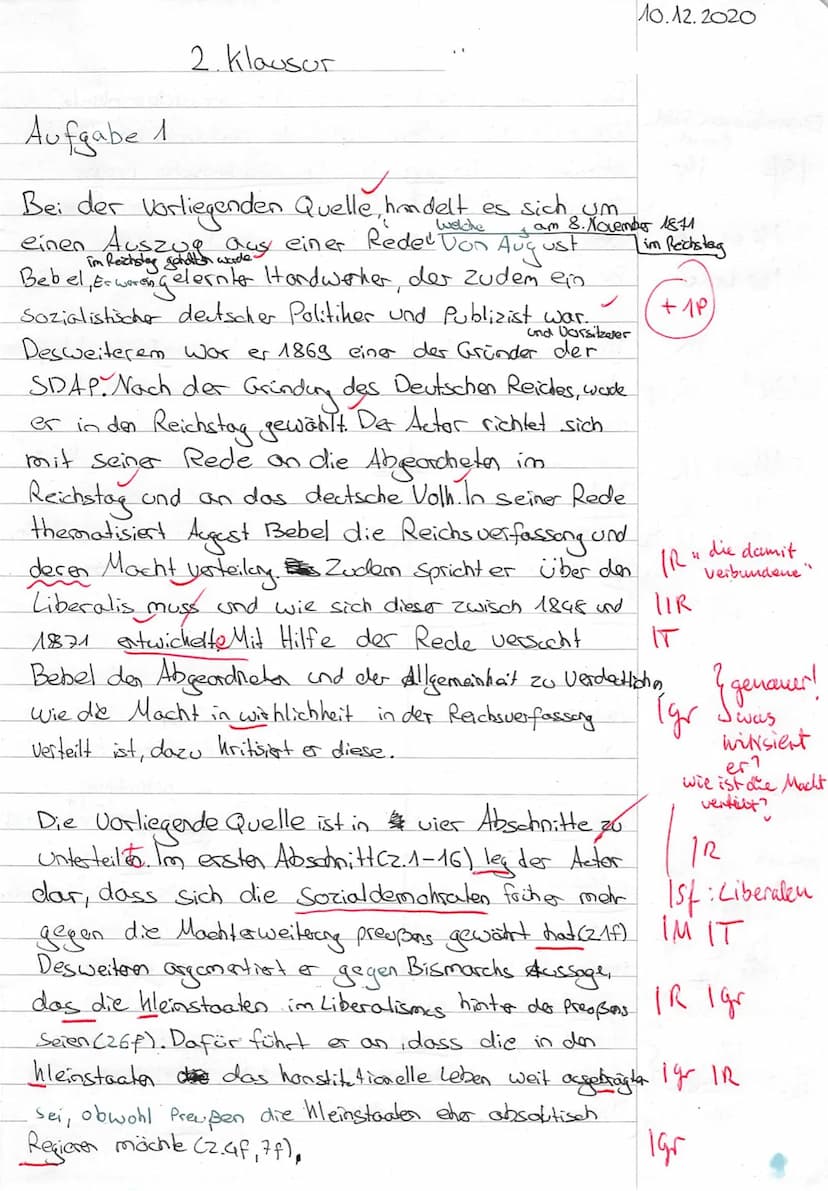 10.12.2020
2. Klausur
Aufgabe 1
Bei der vorliegenden Quelle, handelt es sich um
welche am 8. November 1871
einen Auszug aus einer Rede von August im Reichstag
im Reichstag gehalten wurde
Bebel, Er war ein gelernter Handwerker, der zudem ein
sozialistischer deutscher Politiker und Publizist war. +1P
und Vorsitzerer
Desweiterem war er 1869 einer der Gründer der
SDAP. Nach der Gründung des Deutschen Reiches, wurde
er in den Reichstag gewählt. Der Autor richtet sich
mit seiner Rede an die Abgeordneten im
Reichstag und an das deutsche Volk. In seiner Rede
thematisiert August Bebel die Reichsverfassung und
deren Machtverteilung. Zudem spricht er über den IR "die damit verbundene"
Liberalis muss und wie sich dieser zwisch 1848 und IIR
1871 entwickelte Mit Hilfe der Rede versucht IT
Bebel den Abgeordneten und der Allgemeinheit zu verdeutlichen, genauer!
wie die Macht in wirklichkeit in der Reichsverfassung Igr was
verteilt ist, dazu kritisiert er diese. kritisiert
er?
wie ist die Macht
verteilt?
Die vorliegende Quelle ist in vier Abschnitte zu
unterteilt. Im ersten Abschnitt (Z.1-16) leg der Autor IR
dar, dass sich die Sozialdemokraten früher mehr Isf: Liberalen
gegen die Machterweiterung preußens gewährt hat (Z1f) IM IT
Desweiteren argumentiert er gegen Bismarcks Aussage,
das die kleinstaaten im Liberalismus hinter der Preußens IR Igr
Seien (Z6f). Dafür führt er an, dass die in den
kleinstaaten das konstitutionelle Leben weit ausgeprägter Igr IR
sei, obwohl Preußen die kleinstaaten eher absolutisch
Regieren möchte (Z.4f, 7f), Igr